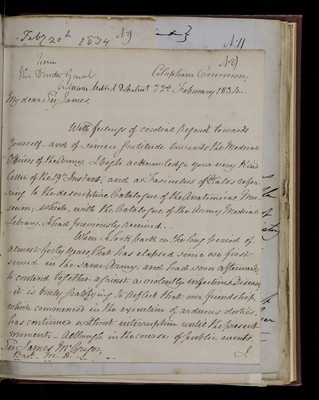 Feby 20th 1834 N 9
N 11
N 8)
From
The Director General
Clapham Common,
22nd February 1834.
My dear Sir James,
With feelings of cordial regard towards
yourself, and of sincere gratitude towards the Medical
Officers of the Army, I beg to acknowledge your very kind
Letter of the 19th Instant, and a Fasciculus of Plates refer-
ring to the descriptive Catalogue of the Anatomical Mu-
seum, which, with the Catalogue of the Army Medical
Library, I had previously received.
When I look back on the long period of
almost forty years, that has elapsed since we first
served in the same Army, and had soon afterwards
to contend together against a violently infectious Disease,
it is truly gratifying to reflect that our friendship,
which commenced in the execution of arduous duties,
has continued without interruption until the present
moment. Although in the course of public events,
Sir James McGrigor
Bart. M. D.
I